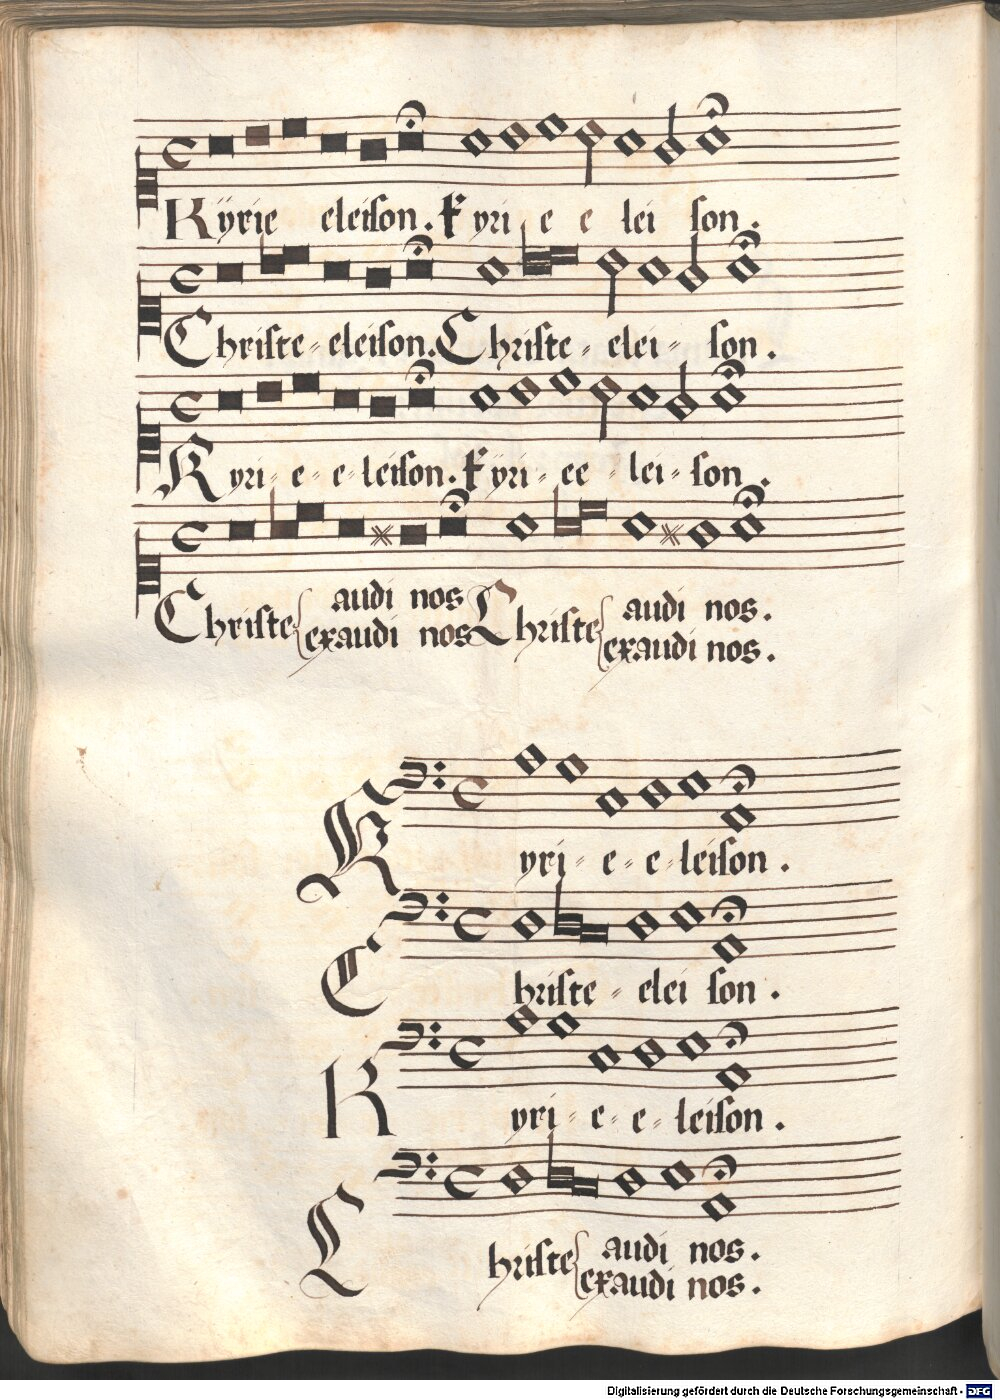 Kÿrie eleiſon. Kyri e e lei ſon.
Chriſte-eleiſon. Chriſte-elei-ſon.
Kyri-e-e-leiſon. Kyri-ee-lei-ſon.
Chriſte audi nos Chriſte audi nos.
exaudi nos exaudi nos.
Kyri-e-e-leiſon.
Chriſte-elei ſon.
Kyri-e-e-leiſon.
Chriſte audi nos.
exaudi nos.
Digitalisierung gefördert durch die Deutsche Forschungsgemeinschaft - DFG